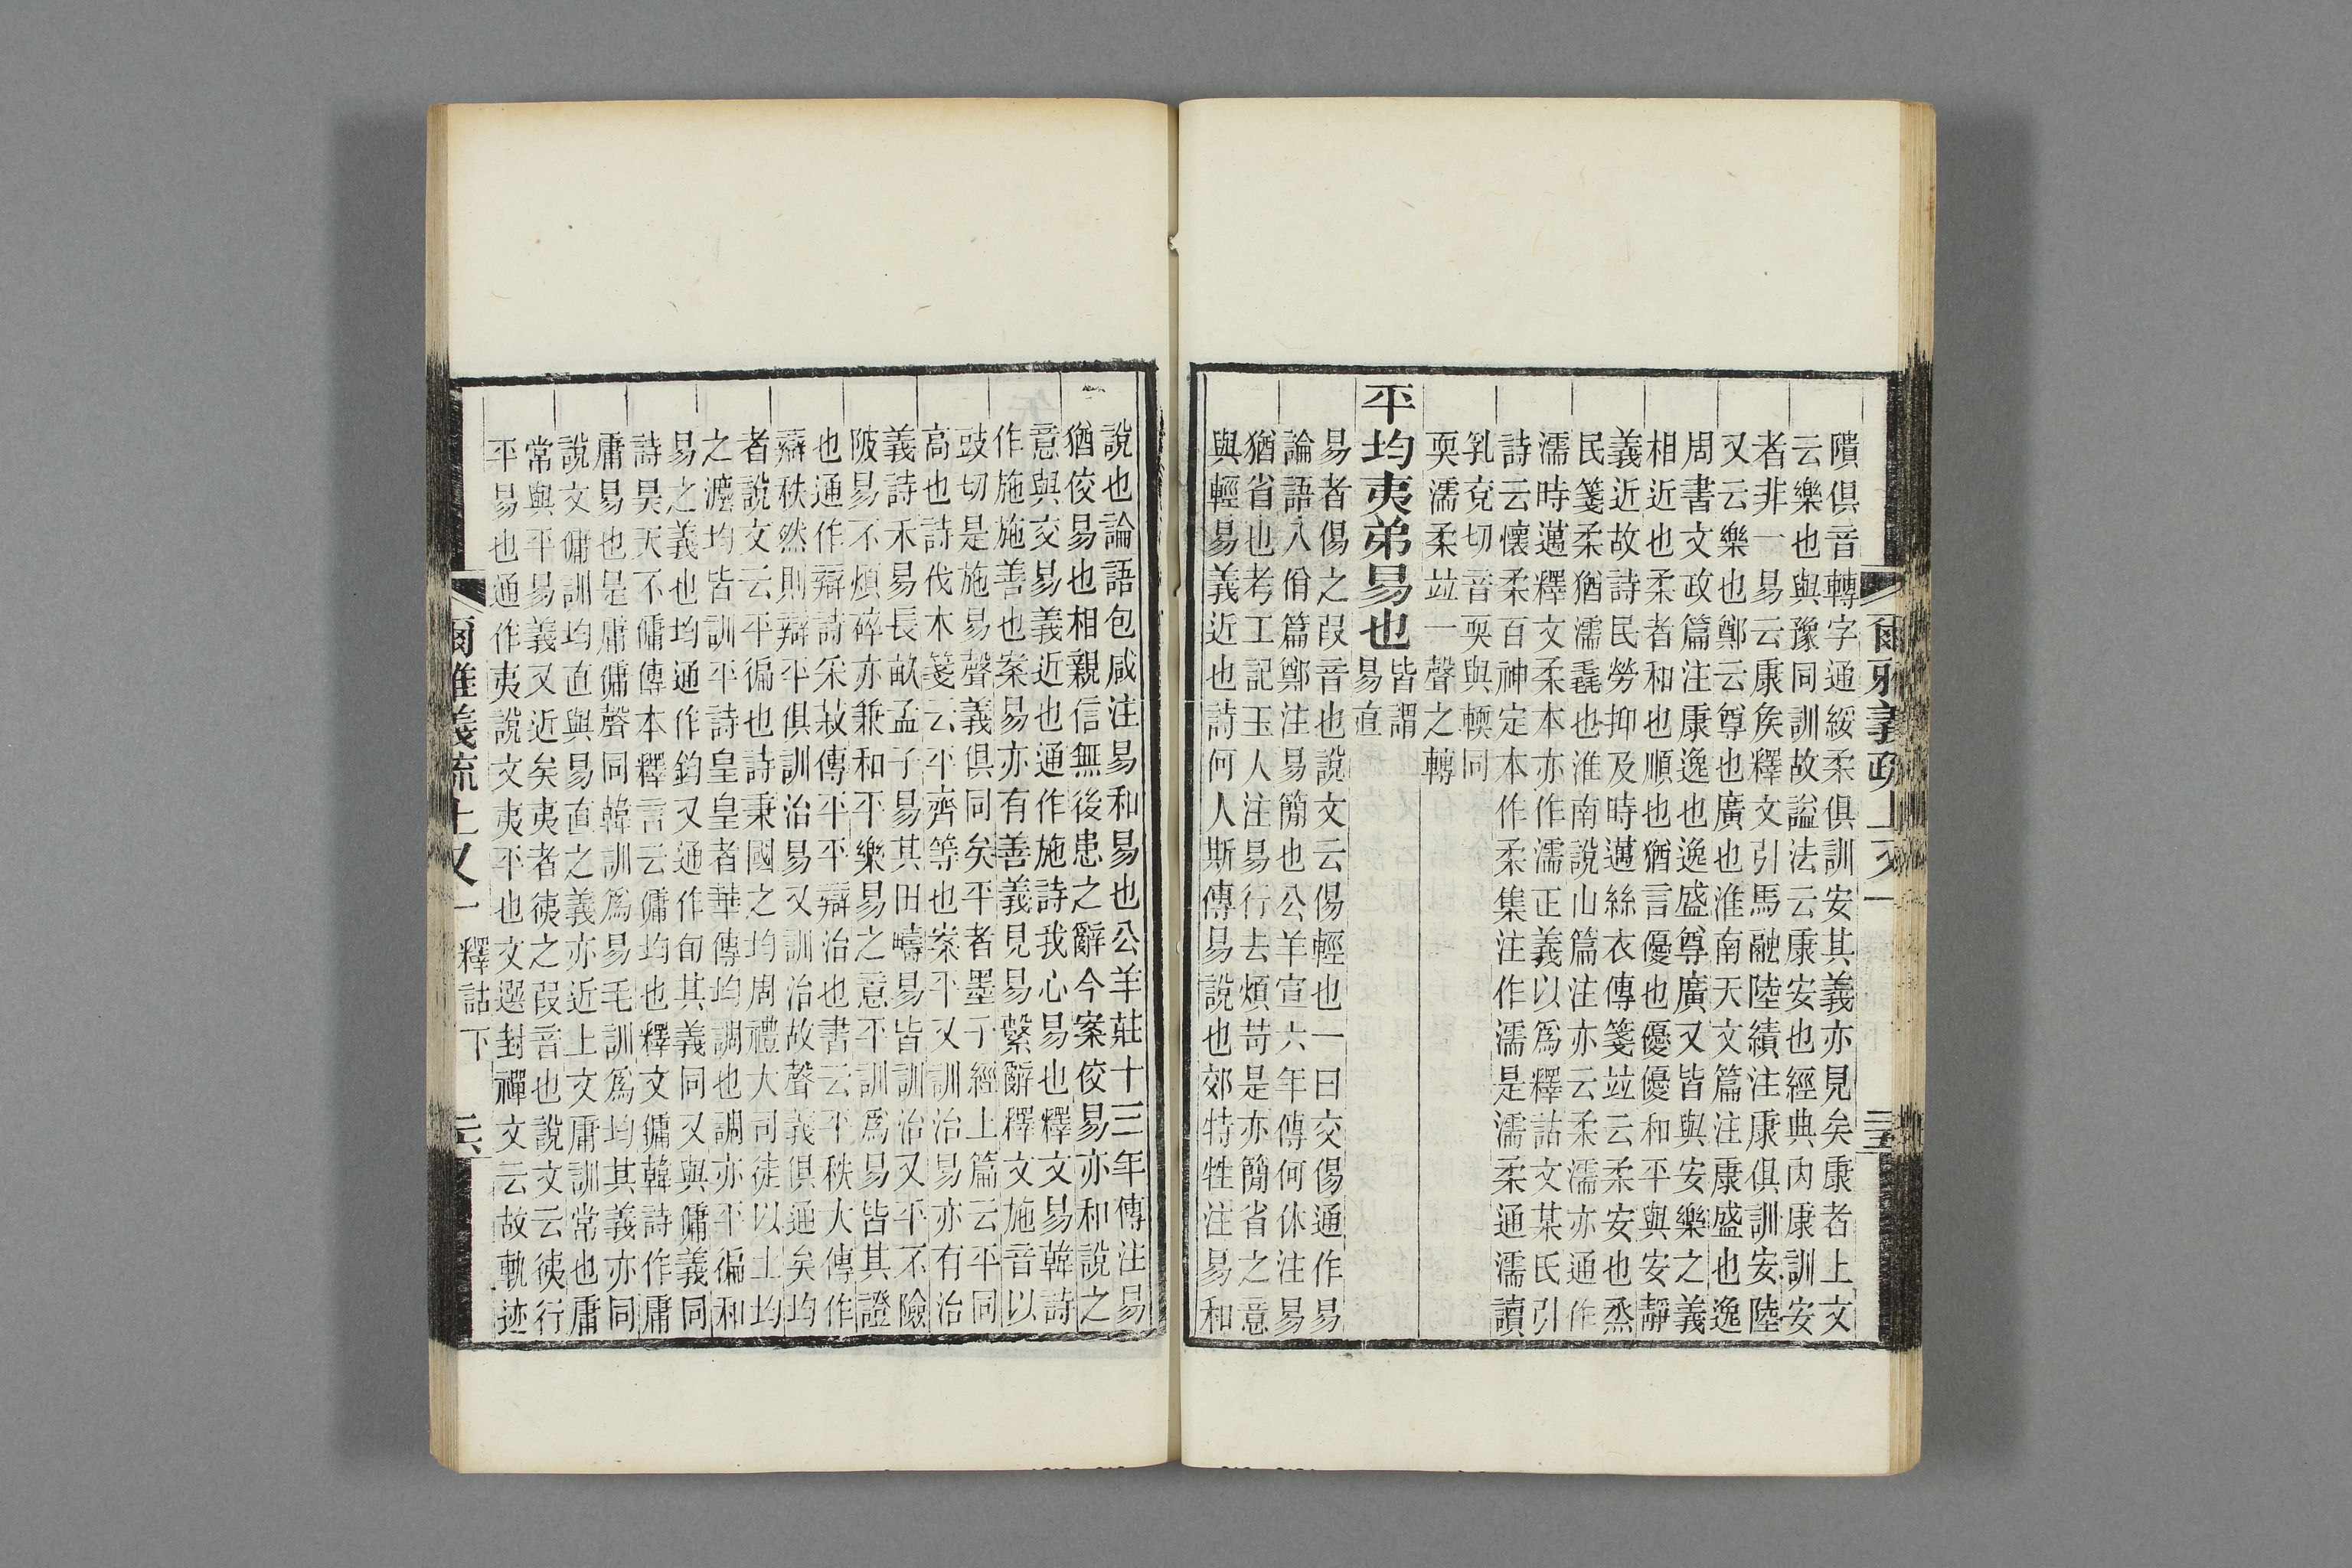 爾雅義疏上又一
三五
隤俱音轉字通綏柔俱訓安其義亦見矣康者上文
云樂也與豫同訓故謚法云康安也經典內康訓安
者非一易云康矦釋文引馬融陸績注康俱訓安陸
又云樂也鄭云尊也廣也淮南天文篇注康盛也逸
周書文政篇注康逸也逸盛尊廣又皆與安樂之義
相近也柔者和也順也猶言優也優優和平與安靜
義近故詩民勞抑及時邁絲衣傳箋竝云柔安也烝
民箋柔猶濡毳也淮南說山篇注亦云柔濡亦通作
濡時邁釋文柔本亦作濡正義以爲釋詁文某氏引
詩云懷柔百神定本作柔集注作濡是濡柔通濡讀
乳兗切音耎與輭同
耎濡柔竝一聲之轉
平均夷弟易也皆謂易直
易者傷之叚音也說文云傷輕也一曰交傷通作易
論語八佾篇鄭注易簡也公羊宣六年傳何休注易
猶省也考工記玉人注易行去煩苛是亦簡省之意
與輕易義近也詩何人斯傳易說也郊特牲注易和
說也論語包咸注易和易也公羊莊十三年傳注易
猶佼易也相親信無後患之辭今案佼易亦和說之
意與交易義近也通作施詩我心易也釋文易韓詩
作施施善也案易亦有善義見易繫辭釋文施音以
豉切是施易聲義俱同矣平者墨子經上篇云平同
高也詩伐木箋云平齊等也案平又訓治易亦有治
義詩禾易長畝孟子易其田疇易皆訓治又平不險
陂易不煩碎亦兼和平樂易之意平訓爲易皆其證
也通作辯詩采菽傳平平辯治也書云平秩大傳作
辯秩然則辯平俱訓治易又訓治故聲義俱通矣均
者說文云平徧也詩秉國之均周禮大司徒以土均
之灋均皆訓平詩皇皇者華傳均調也調亦平徧和
易之義也均通作鈞又通作旬其義同又與傭義同
詩昊天不傭傳本釋言云傭均也釋文傭韓詩作庸
庸易也是庸傭聲同韓訓爲易毛訓爲均其義亦同
說文傭訓均直與易直之義亦近上文庸訓常也庸
常與平易義又近矣夷者徥之叚音也說文云徥行
平易也通作夷說文夷平也文選封禪文云故軌迹
爾雅義疏上又一 釋詁下